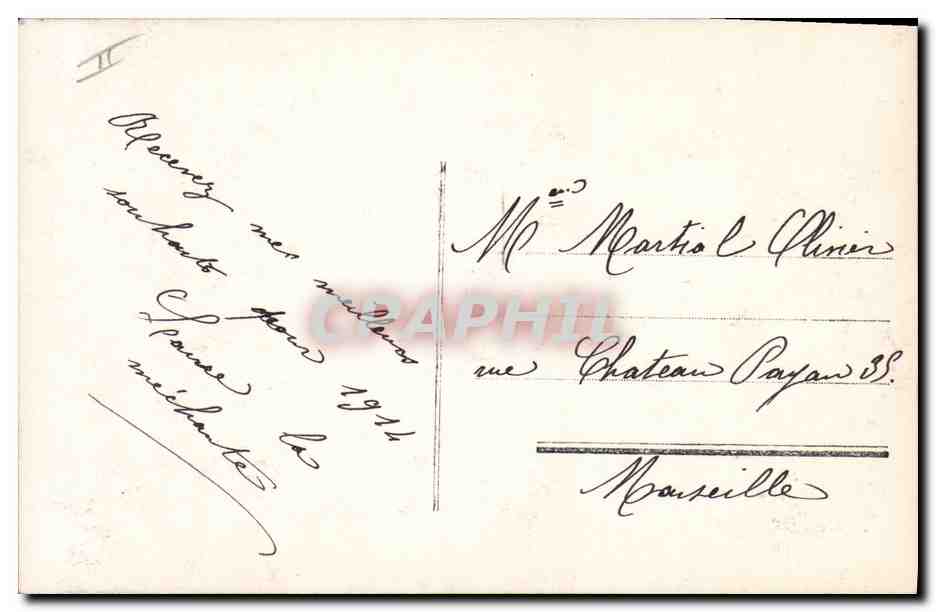 II
Recevez mes meilleurs
souhaits pour 1914
la
méchante
Mr Martial Olivier
rue Chateau Payan 35.
Marseille
CRAPHIL